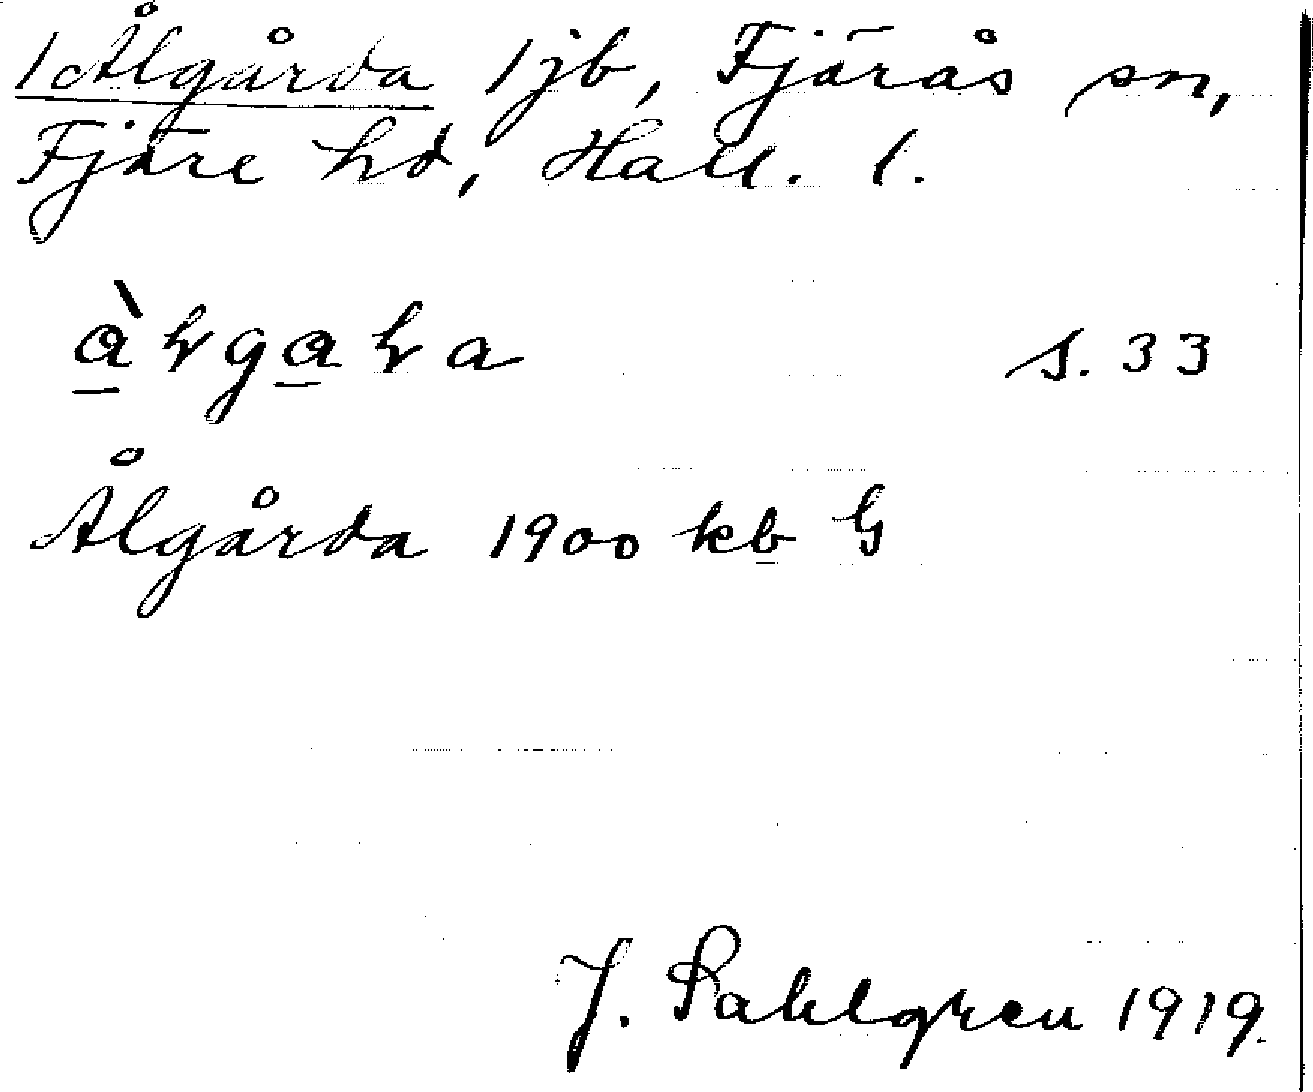 1 Ålgårda 1 jb, Fjärås sn,
Fjäre hd, Hall. l.
s. 33
Ålgårda 1900 kb G
J. Sahlgren 1919.